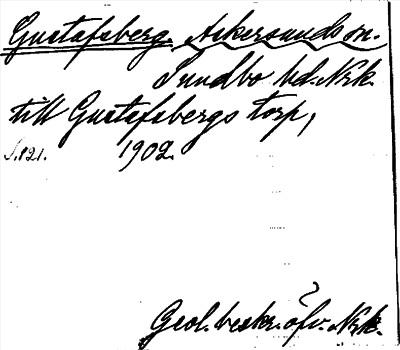 Gustafsberg. Askersunds sn.
Sundbo hd. Nrk.
till Gustafsbergs torp,
S.121. 1902.
Geol. beskr. öfv. Nrk.